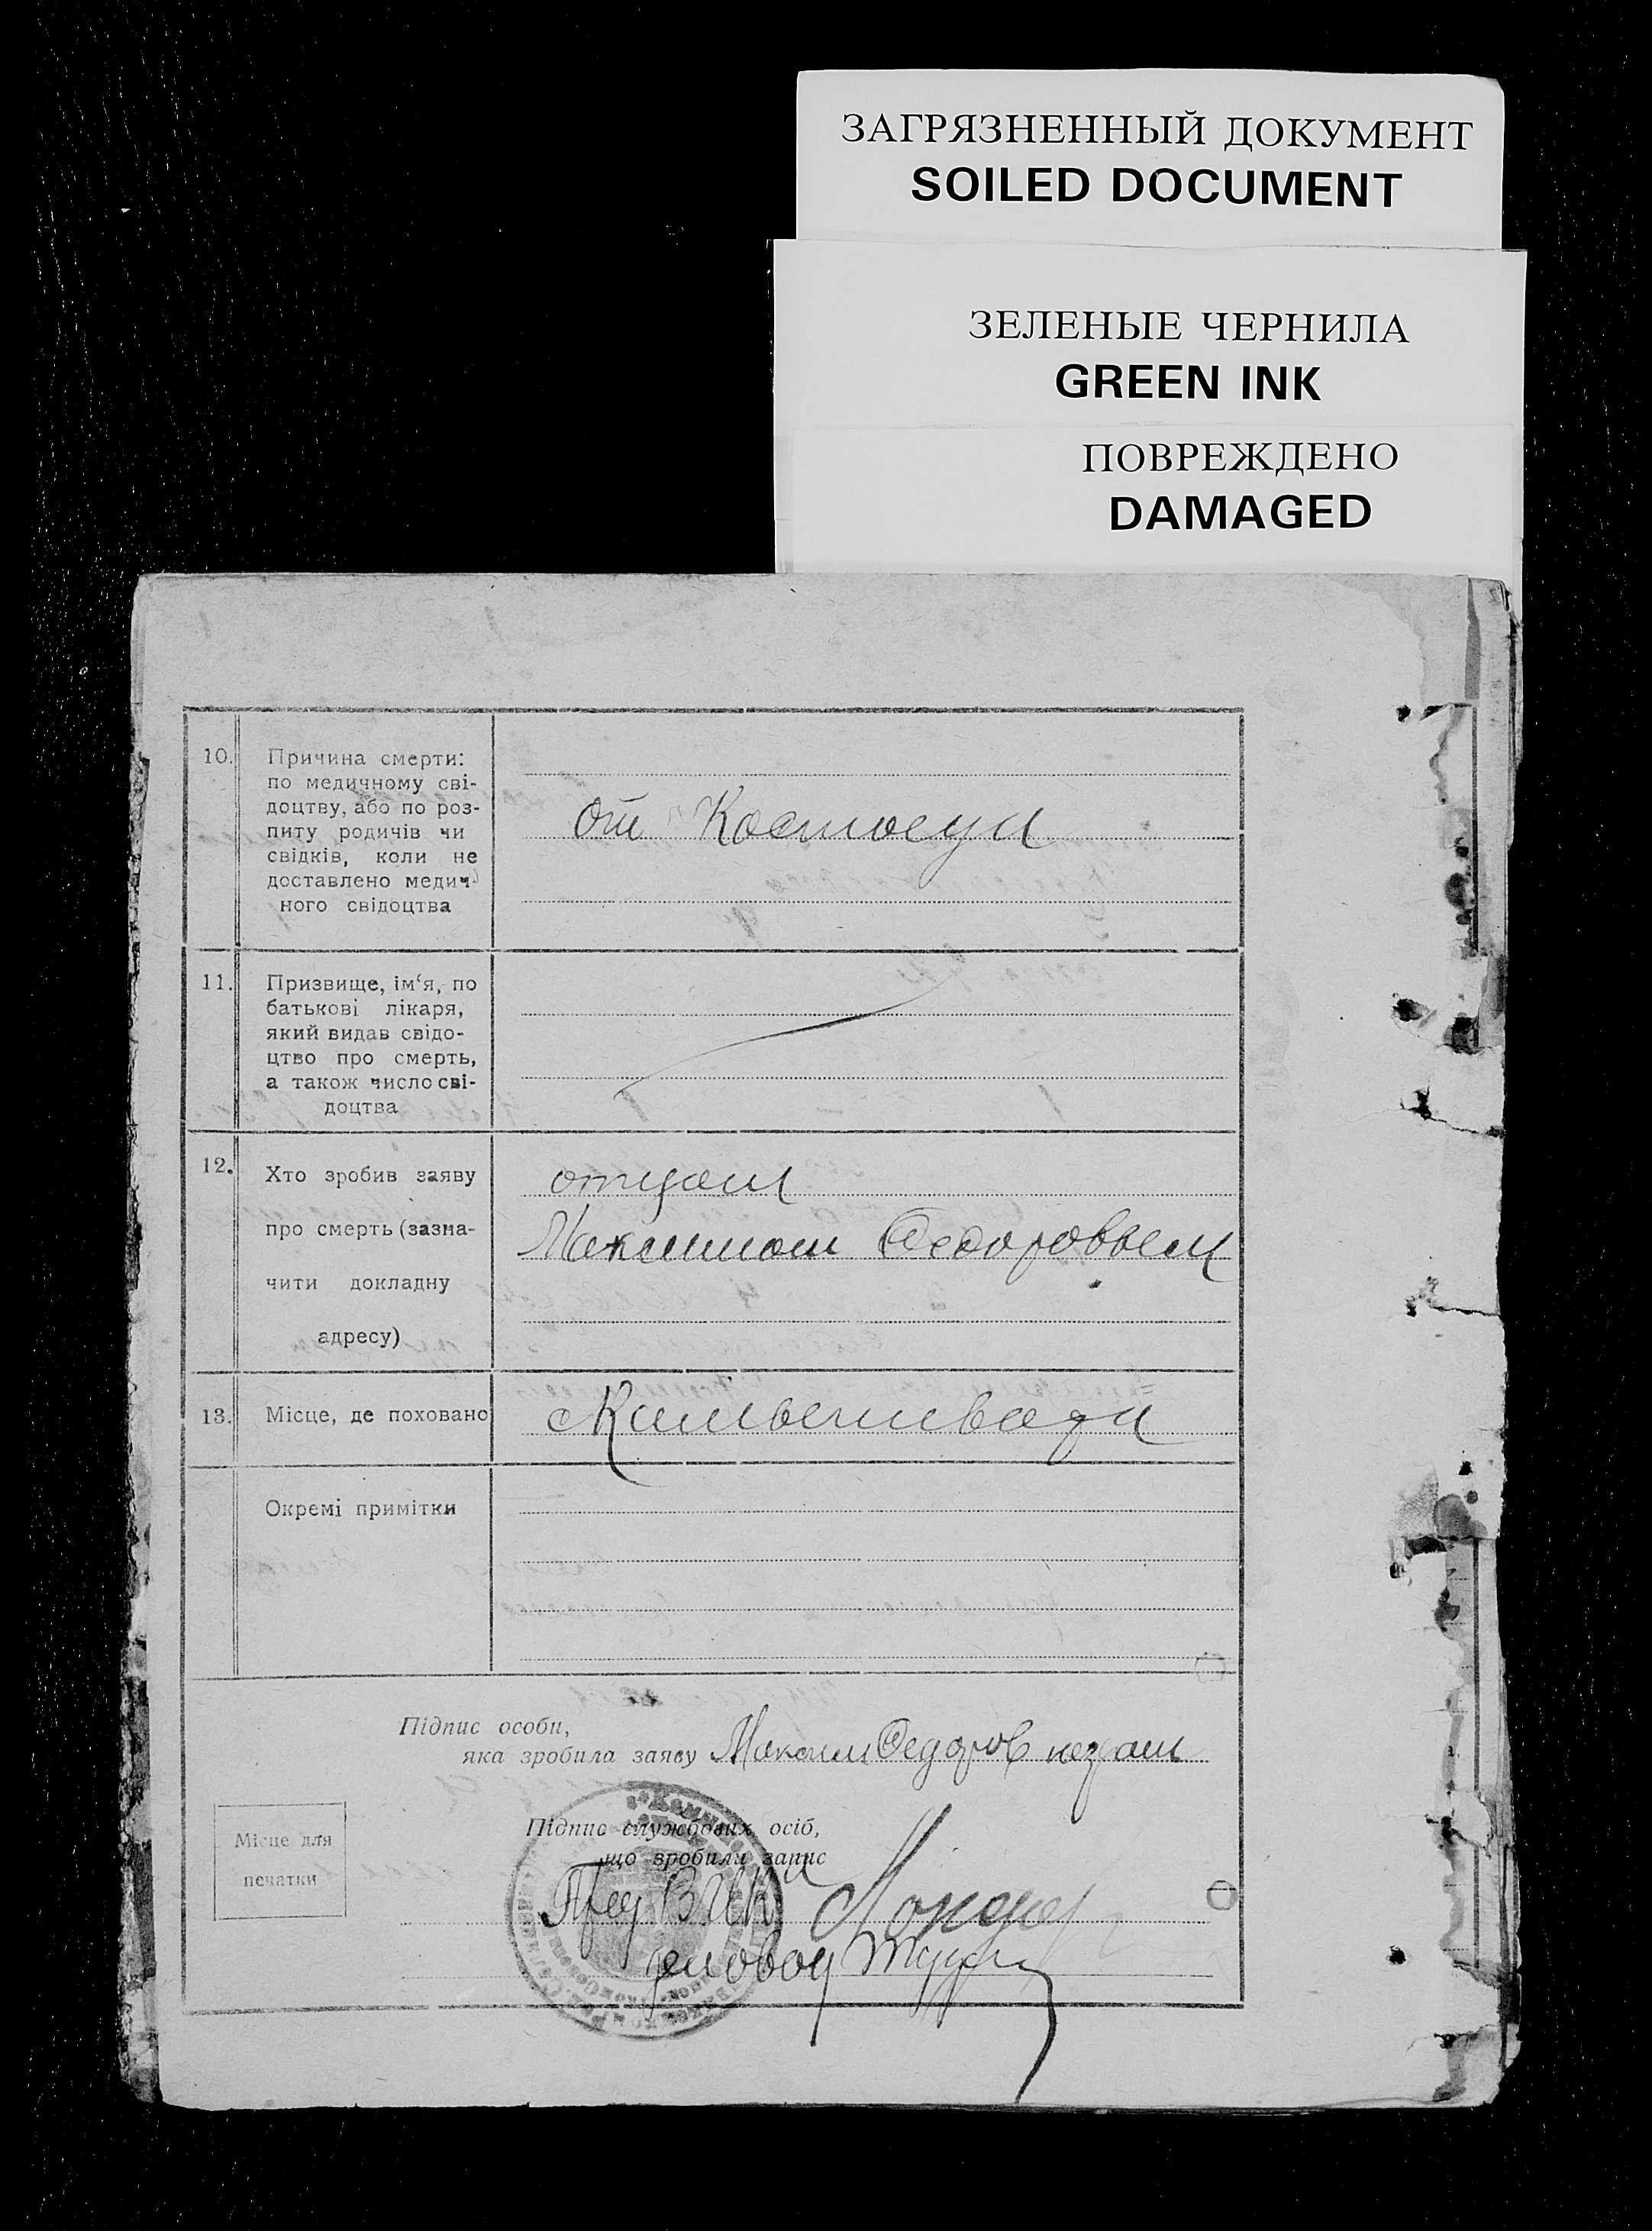 ЗАГРЯЗНЕННЫЙ ДОКУМЕНТ
SOILED DOCUMENT
ЗЕЛЕНЫЕ ЧЕРНИЛА
GREEN INK
ПОВРЕЖДЕНО
DAMAGED
10.
Причина смерти:
по медичному сві-
доцтву, або по роз-
питу родичів чи
свідків, коли не
доставлено медич-
ного свідоцтва
от
11.
Призвище, ім‘я, по
батькові лікаря,
який видав свідо-
цтво про смерть,
а також число сві-
доцтва
12.
Хто зробив заяву
про смерть (зазна-
чити докладну
адресу)
отцом
Максимом Федоровым
13.
Місце, де поховано
Окремі примітки
Підпис особи,
яка зробила заяву Максим Федоров
Підпис службових осіб,
що зробили запис
Місце для
печатки
Пред ВИК